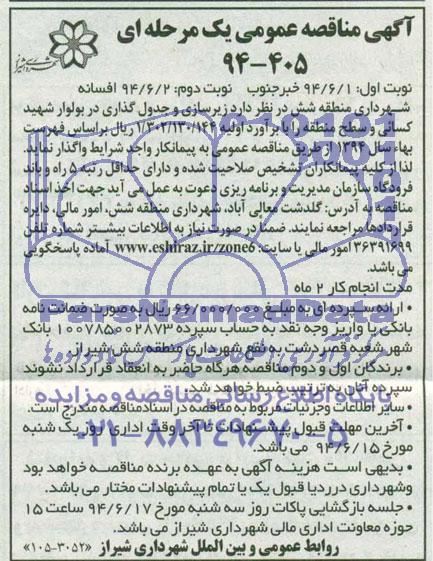 آگهی مناقصه عمومی یک مرحله ای
۹۴-۴۰۵
نوبت اول: ۹۴/۶/۱ خبرجنوب    نوبت دوم: ۹۴/۶/۲ افسانه
شهرداری منطقه شش در نظر دارد زیرسازی و جدول گذاری در بولوار شهید
کسائی و سطح منطقه را با برآورد اولیه ۱/۳۰۲/۱۳۰/۱۴۴ ریال براساس فهرست
بهاء سال ۱۳۹۴ از طریق مناقصه عمومی به پیمانکار واجد شرایط واگذار نماید.
لذا از کلیه پیمانکاران تشخیص صلاحیت شده و دارای حداقل رتبه ۵ راه و باند
فرودگاه سازمان مدیریت و برنامه ریزی دعوت به عمل می آید جهت اخذ اسناد
مناقصه به آدرس: گلدشت معالی آباد، شهرداری منطقه شش، امور مالی، دایره
قراردادها مراجعه نمایند. ضمنا در صورت نیاز به اطلاعات بیشتر شماره تلفن
۳۶۳۹۱۶۹۹ امور مالی یا سایت: www.eshiraz.ir/zone6 آماده پاسخگویی
می باشد.
مدت انجام کار ۲ ماه
• ارائه سپرده ای به مبلغ ۶۶/۰۰۰/۰۰۰ ریال به صورت ضمانت نامه
بانکی یا واریز وجه نقد به حساب سپرده ۱۰۰۷۸۵۰۰۲۸۷۳ بانک
شهر شعبه قصردشت به نفع شهرداری منطقه شش شیراز
• برندگان اول و دوم مناقصه هرگاه حاضر به انعقاد قرارداد نشوند
سپرده آنان به ترتیب ضبط خواهد شد.
• سایر اطلاعات و جزئیات مربوط به مناقصه در اسناد مناقصه مندرج است.
• آخرین مهلت قبول پیشنهادات تا آخر وقت اداری روز یک شنبه
مورخ ۹۴/۶/۱۵ می باشد.
• بدیهی است هزینه آگهی به عهده برنده مناقصه خواهد بود
وشهرداری در رد یا قبول یک یا تمام پیشنهادات مختار می باشد.
• جلسه بازگشایی پاکات روز سه شنبه مورخ ۹۴/۶/۱۷ ساعت ۱۵
حوزه معاونت اداری مالی شهرداری شیراز می باشد.
روابط عمومی و بین الملل شهرداری شیراز «۳۰۵۲-۱۰۵»
پایگاه اطلاع رسانی مناقصه و مزایده
۰۲۱-۸۸۳۴۹۶۷۰-۵